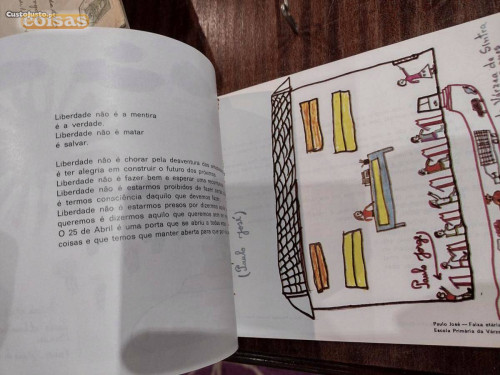 CustoJusto.pt
coisas
Liberdade não é a mentira
é a verdade.
Liberdade não é matar
é salvar.
Liberdade não é chorar pela desventura dos
é ter alegria em construir o futuro dos próximos.
Liberdade não é fazer bem e esperar uma
Liberdade não é estarmos proibidos de
é termos consciência daquilo que devemos fazer.
Liberdade não é estarmos presos por dizermos
queremos é dizermos aquilo que queremos sem
O 25 de Abril é uma porta que se abriu a todas
coisas e que temos que manter aberta para que
(Paulo José)
Paulo Jorge
Sintra
Paulo José — Faixa etária
Escola Primária da